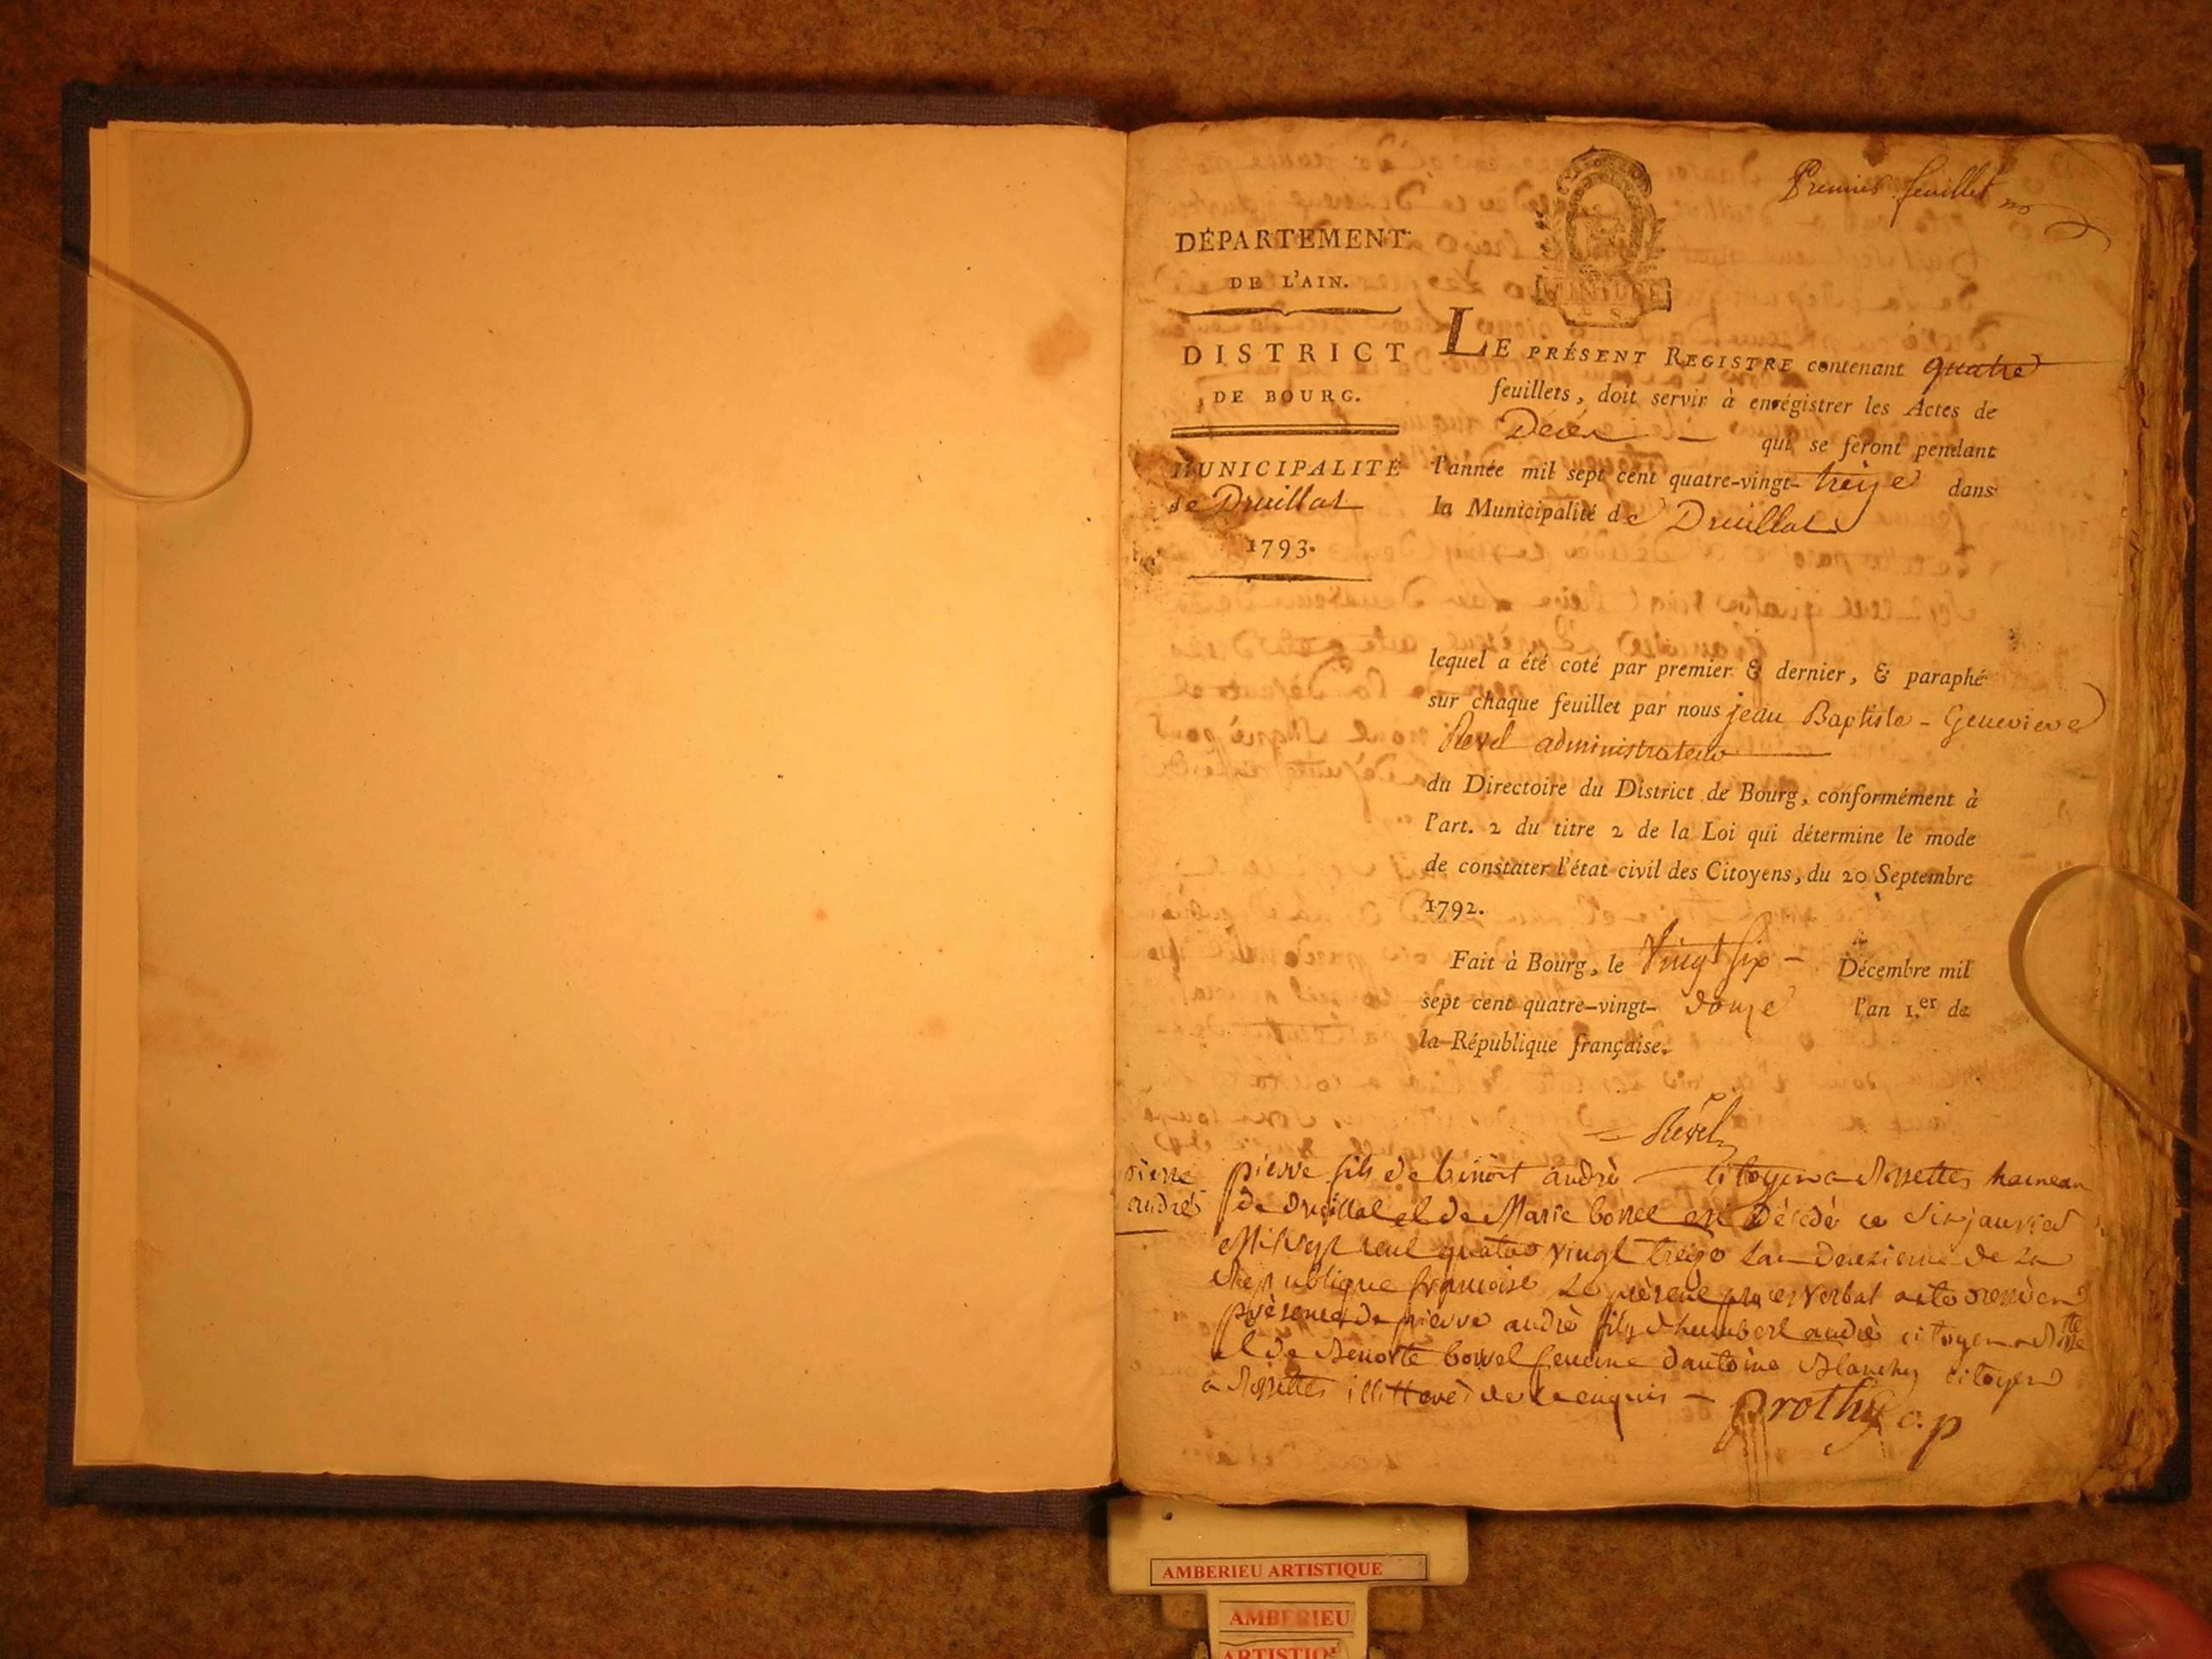 Premier feuillet
DÉPARTEMENT
DE L'AIN.
DISTRICT
DE BOURG.
MUNICIPALITÉ
de Druillat
1793.
LE PRÉSENT REGISTRE contenant quatre
feuillets, doit servir à enrégistrer les Actes de
Décès — qui se feront pendant
l'année mil sept cent quatre-vingt-treize dans
la Municipalité de Druillat
lequel a été coté par premier & dernier, & paraphé
sur chaque feuillet par nous jean Baptiste - Genevieve
Revel administrateur
du Directoire du District de Bourg, conformément à
l'art. 2 du titre 2 de la Loi qui détermine le mode
de constater l'état civil des Citoyens, du 20 Septembre
1792.
Fait à Bourg, le Vingt six - Décembre mil
sept cent quatre-vingt- douze l'an 1.er de
la République française.
Revel
pierre
andré
pierre fils de benoit andrè citoyen a Rossettes hameau
de Druillat et de Marie borrel est Dècèdè ce Six janvier
Mil Sept cent quatre vingt treize Lan deuxieme de La
Republique françoise Le prèsent procès verbal acte dressè en
prèsence de pierre andrè fils dhumbert andrè citoyen a
et de Benoite borrel femme dantoine Blanchy citoyen
a Rossettes illitterè de ce enquis —
Prothy o.p
AMBERIEU ARTISTIQUE
AMBERIEU
ARTISTIQ